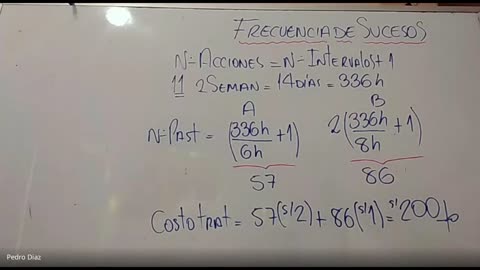 FRECUENCIA DE SUCESOS
N- ACCIONES = N- INTERVALOS + 1
11 2 SEMAN = 14 DÍAS = 336h
A B
N- PAST = (336h/6h + 1) 2(336h/8h + 1)
57 86
COSTO TRAT = 57(S/2) + 86(S/1) = S/200
Pedro Diaz